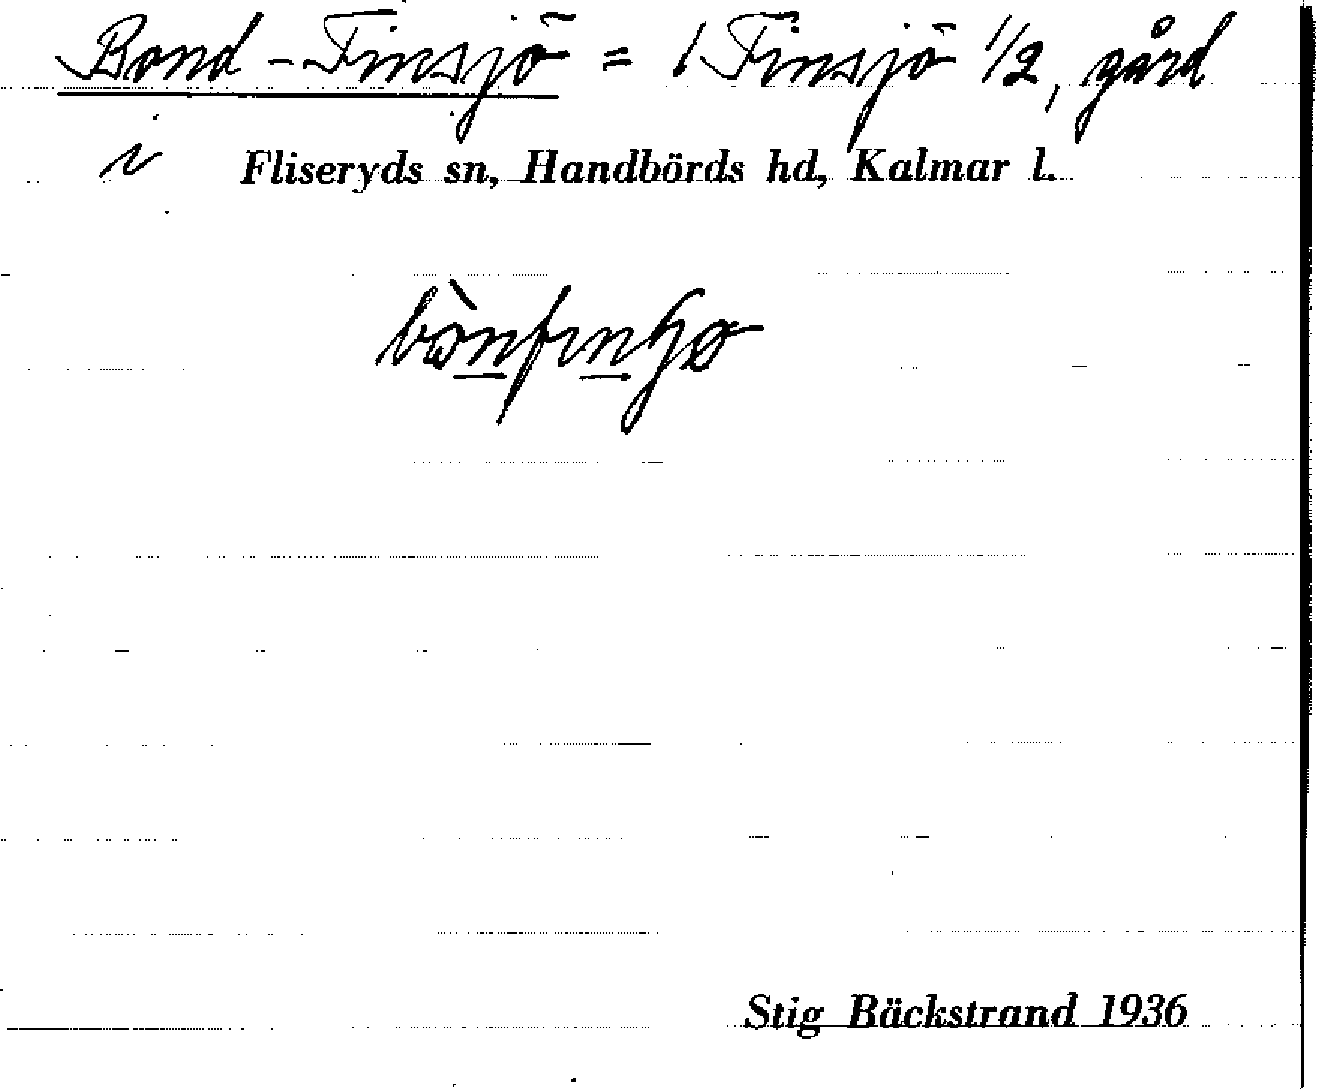 Bond-Finsjö = 1 Finsjö 1/2, gård
i Fliseryds sn, Handbörds hd, Kalmar l.
Stig Bäckstrand 1936